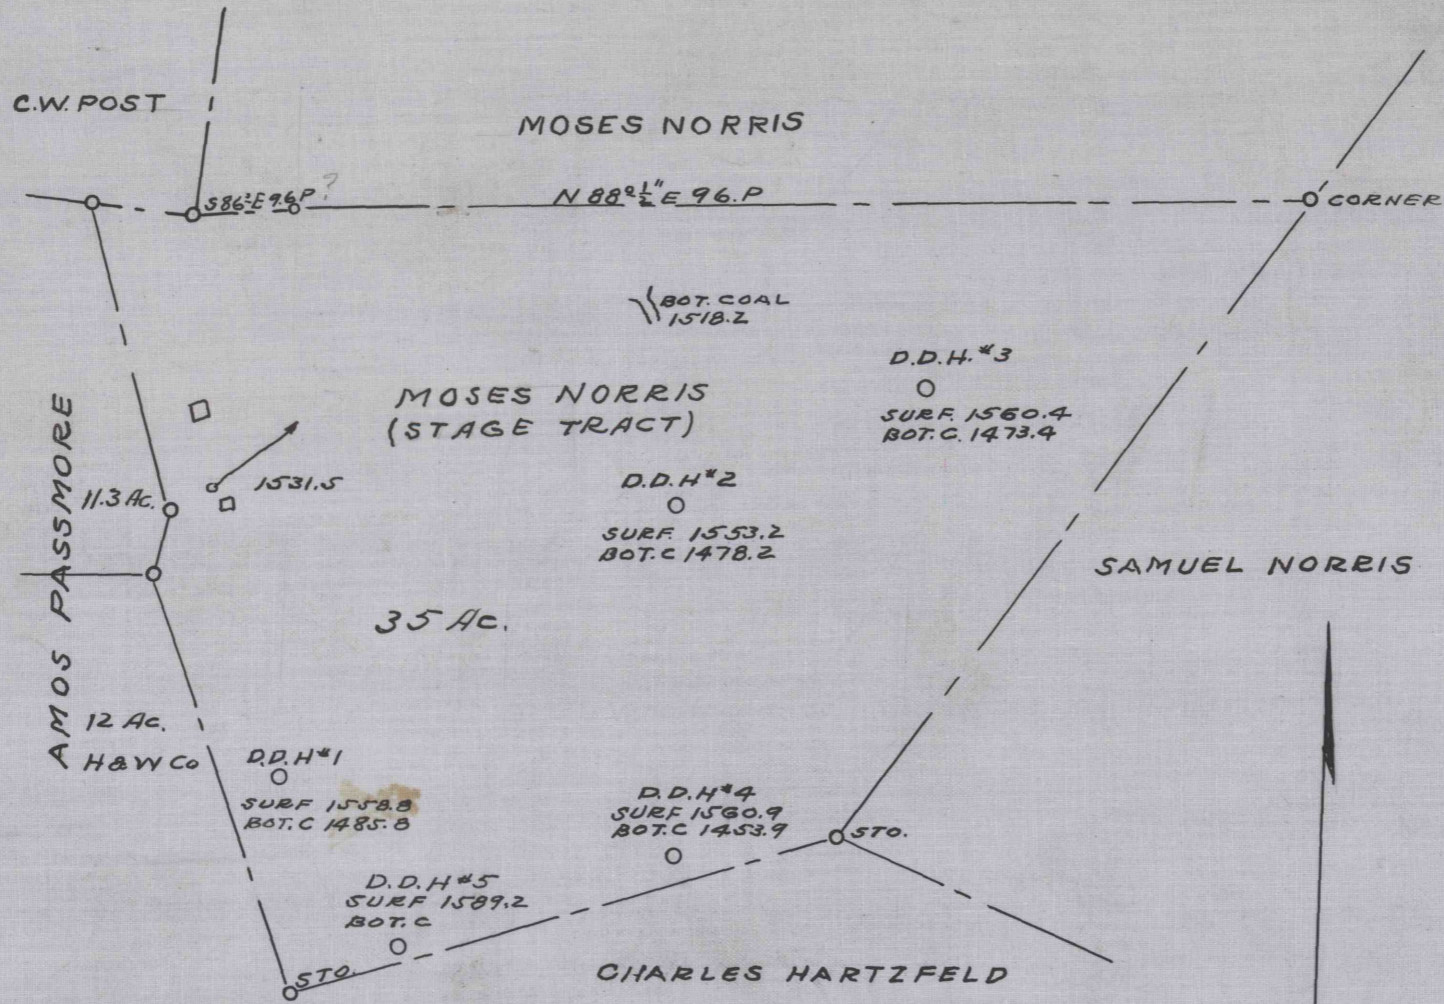 C.W. POST
MOSES NORRIS
S86½E 9.6P ?
N 88°½" E 96.P
CORNER
BOT. COAL
1518.2
D.D.H. #3
SURF. 1560.4
BOT. C. 1473.4
MOSES NORRIS
(STAGE TRACT)
AMOS PASSMORE
11.3 Ac.
1531.5
D.D.H #2
SURF. 1553.2
BOT. C 1478.2
SAMUEL NORRIS
35 Ac.
12 Ac.
H&W Co
D.D.H #1
SURF 1558.8
BOT. C 1485.8
D.D.H #4
SURF 1560.9
BOT. C 1453.9
STO.
D.D.H #5
SURF 1589.2
BOT. C
STO.
CHARLES HARTZFELD